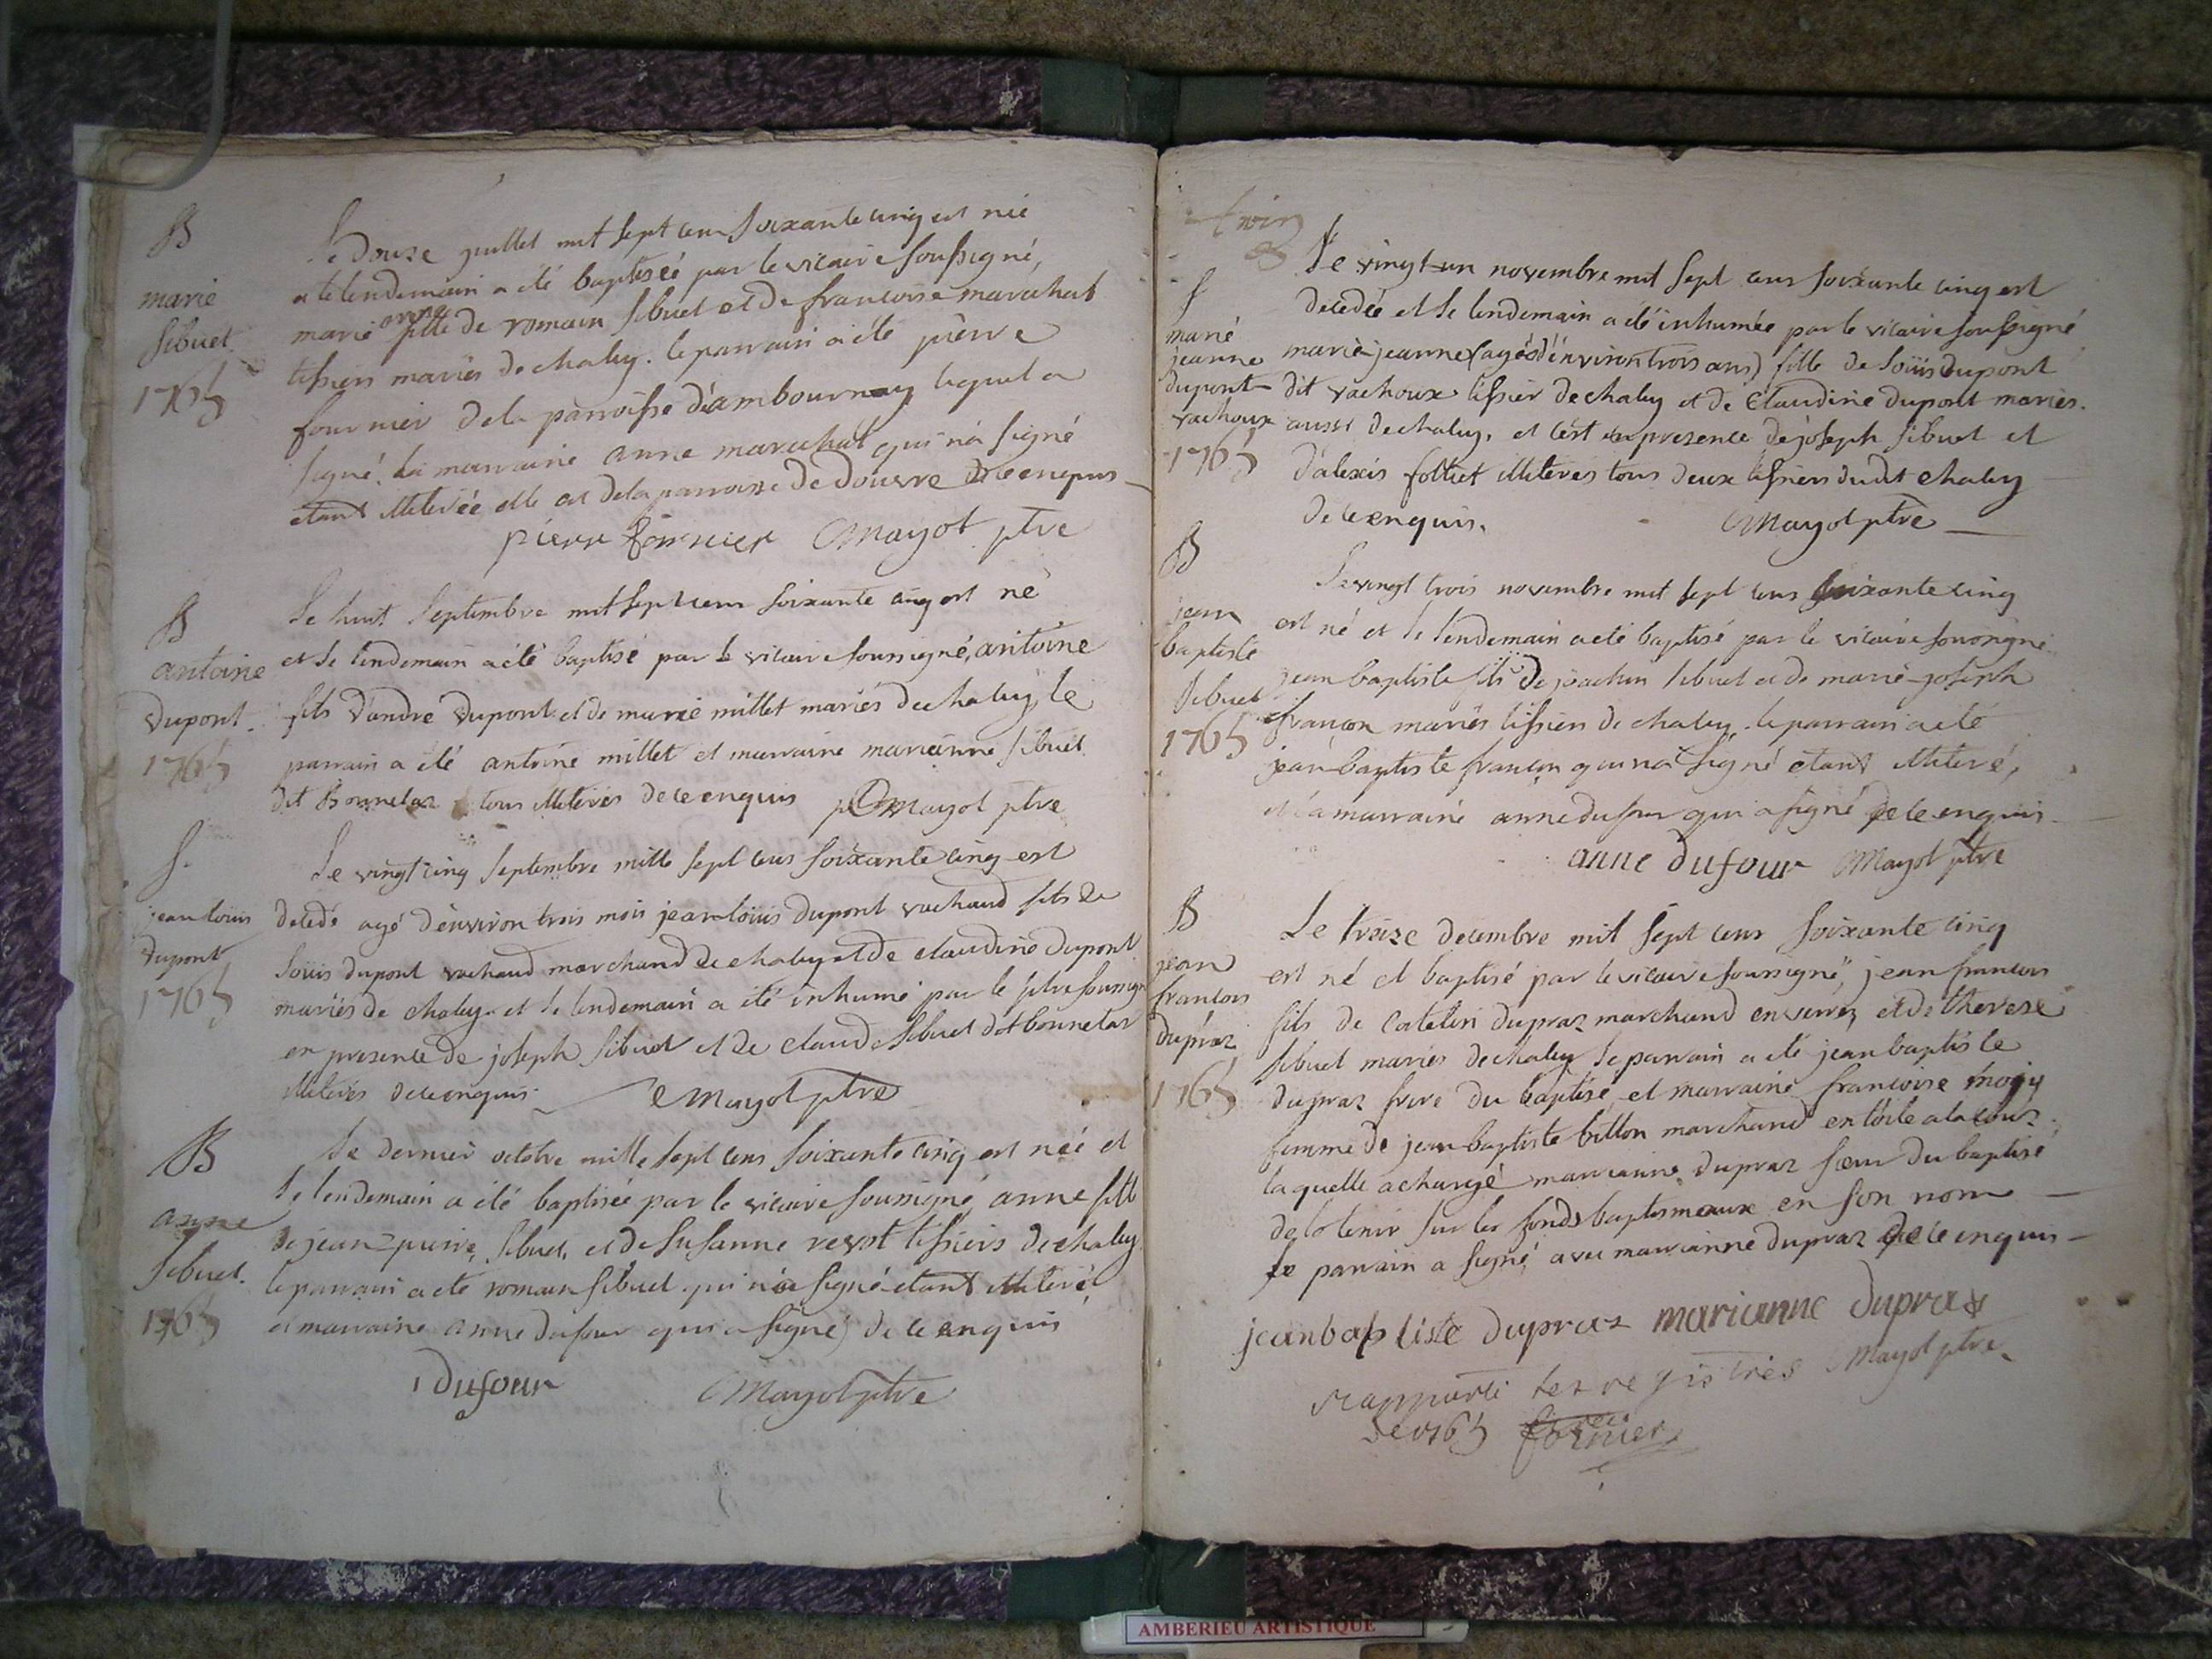 B
marie
sibuet
1765
Le douze juillet mil sept cens soixante cinq est née
et le lendemain a été baptisée par le vicaire soussigné,
marie anne fille de romain sibuet et de francoise marachat
tissiers mariés de chaley. le parrain a été pierre
fournier de la parroisse d'ambournay lequel a
signé. la marraine anne marachat qui n'a signé
étant illiterée elle est de la parroisse de douvre de ce enquis
pierre fornier Mayol ptre
B
antoine
dupont
1765
Le huit septembre mil sept cens soixante cinq est né
et le lendemain a été baptisé par le vicaire soussigné, antoine
fils d'andre dupont et de marie millet mariés de chaley, le
parrain a été antoine millet et marraine marianne sibuet
dit Bonnetar tous illiterés de ce enquis Mayol ptre
S.
jean louis
dupont
1765
Le vingt cinq septembre mille sept cens soixante cinq est
decedé agé d'environ trois mois jean louis dupont vachaud fils de
Louis dupont vachaud marchand de chaley et de claudine dupont
mariés de chaley et le lendemain a été inhumé par le ptre soussigné
en presence de joseph sibuet et de claude sibuet dit bonnetar
illiterés de ce enquis. Mayol ptre
B
anne
sibuet.
1765
Le dernier octobre mille sept cens soixante cinq est née et
le lendemain a été baptisée par le vicaire soussigné anne fille
de jean pierre sibuet, et de susanne tissiers de chaley
le parrain a été romain sibuet qui n'a signé étant illiteré,
et marraine anne dufour qui a signé de ce enquis
dufour Mayol ptre
S
marie
jeanne
dupont
vachoux
1765
Le vingt un novembre mil sept cens soixante cinq est
decedée et le lendemain a été inhumée par le vicaire soussigné
marie jeanne (agée d'environ trois ans) fille de Louis dupont
dit vachoux tissier de chaley et de Claudine dupont mariés
aussi de chaley, et c'est en presence de joseph sibuet et
d'alexis folliet illiterés tous deux tissiers dudit chaley
de ce enquis. Mayol ptre
B
jean
baptiste
sibuet
1765
Le vingt trois novembre mil sept cens soixante cinq
est né et le lendemain a été baptisé par le vicaire soussigné
jean baptiste fils de joachim sibuet et de marie joseph
françon mariés tissiers de chaley. le parrain a été
jean baptiste françon qui n'a signé étant illiteré,
et la marraine anne dufour qui a signé de ce enquis
anne dufour Mayol ptre
B
jean
francois
dupraz
1765
Le treize decembre mil sept cens soixante cinq
est né et baptisé par le vicaire soussigné, jean francois
fils de Catelin dupraz marchand en verre et de therese
sibuet mariés de chaley le parrain a été jean baptiste
dupraz frere du baptisé et marraine francoise
femme de jean baptiste billon marchand en toile a la cour
laquelle a chargé marianne dupraz soeur du baptisé
de le tenir sur les fonds baptismeaux en son nom
le parrain a signé avec marianne dupraz de ce enquis
jean baptiste dupraz marianne dupraz
Mayol ptre
rapporté les registres
de 1765 fornier
AMBERIEU ARTISTIQUE